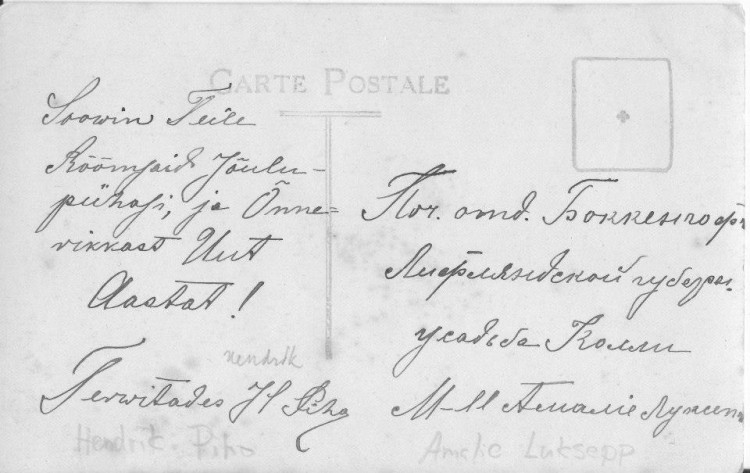 CARTE POSTALE
Soowin Teile
Rõõmsaid Jõulu-
pühasi, ja Õnne-
rikkast Uut
Aastat!
Hendrik
Terwitades H Piho
Hendrik Piho
Поч. отд. Боккенгоф
Лифляндской губерн.
усадьба Колли
М-ll Амаліе Луксепп
Amelie Luksepp